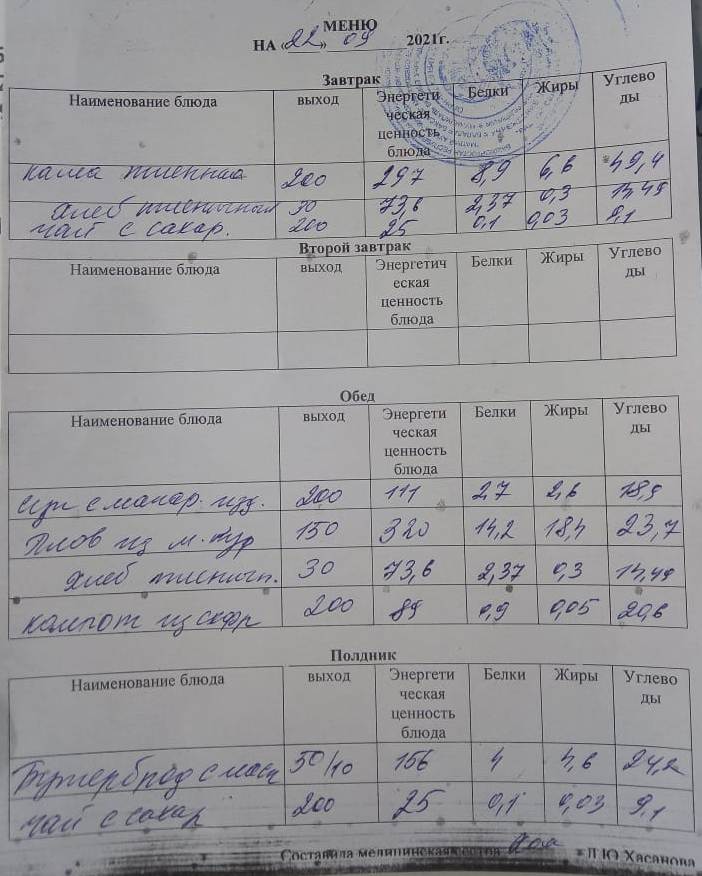 МЕНЮ
НА «22» 09 2021г.
Завтрак
Наименование блюда выход Энергети ческая ценность блюда Белки Жиры Углево ды
каша пшенная 200 297 8,9 6,6 49,4
хлеб пшеничный 30 73,6 2,37 0,3 14,49
чай с сахар. 200 25 0,1 0,03 9,1
Второй завтрак
Наименование блюда выход Энергетич еская ценность блюда Белки Жиры Углево ды
Обед
Наименование блюда выход Энергети ческая ценность блюда Белки Жиры Углево ды
суп с макар. изд. 200 111 2,7 2,6 18,9
Плов из м. кур 150 320 14,2 18,4 23,7
хлеб пшеничн. 30 73,6 2,37 0,3 14,49
компот из 200 89 0,9 0,05 20,6
Полдник
Наименование блюда выход Энергети ческая ценность блюда Белки Жиры Углево ды
Бутерброд с масл 50/10 156 4 4,6 24,2
чай с сахар 200 25 0,1 0,03 9,1
Составила медицинская сестра Л.Ю Хасанова